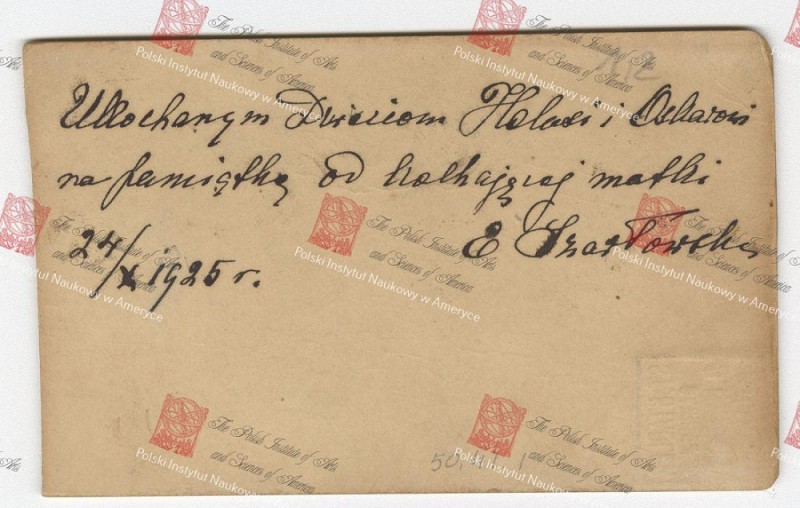 Ukochanym Dzieciom Halusi i Oskarowi
na pamiątkę od kochającej matki
E Szarłowska
24/X 1925 r.
112
50.
The Polish Institute of Arts
and Sciences of America
Polski Instytut Naukowy w Ameryce